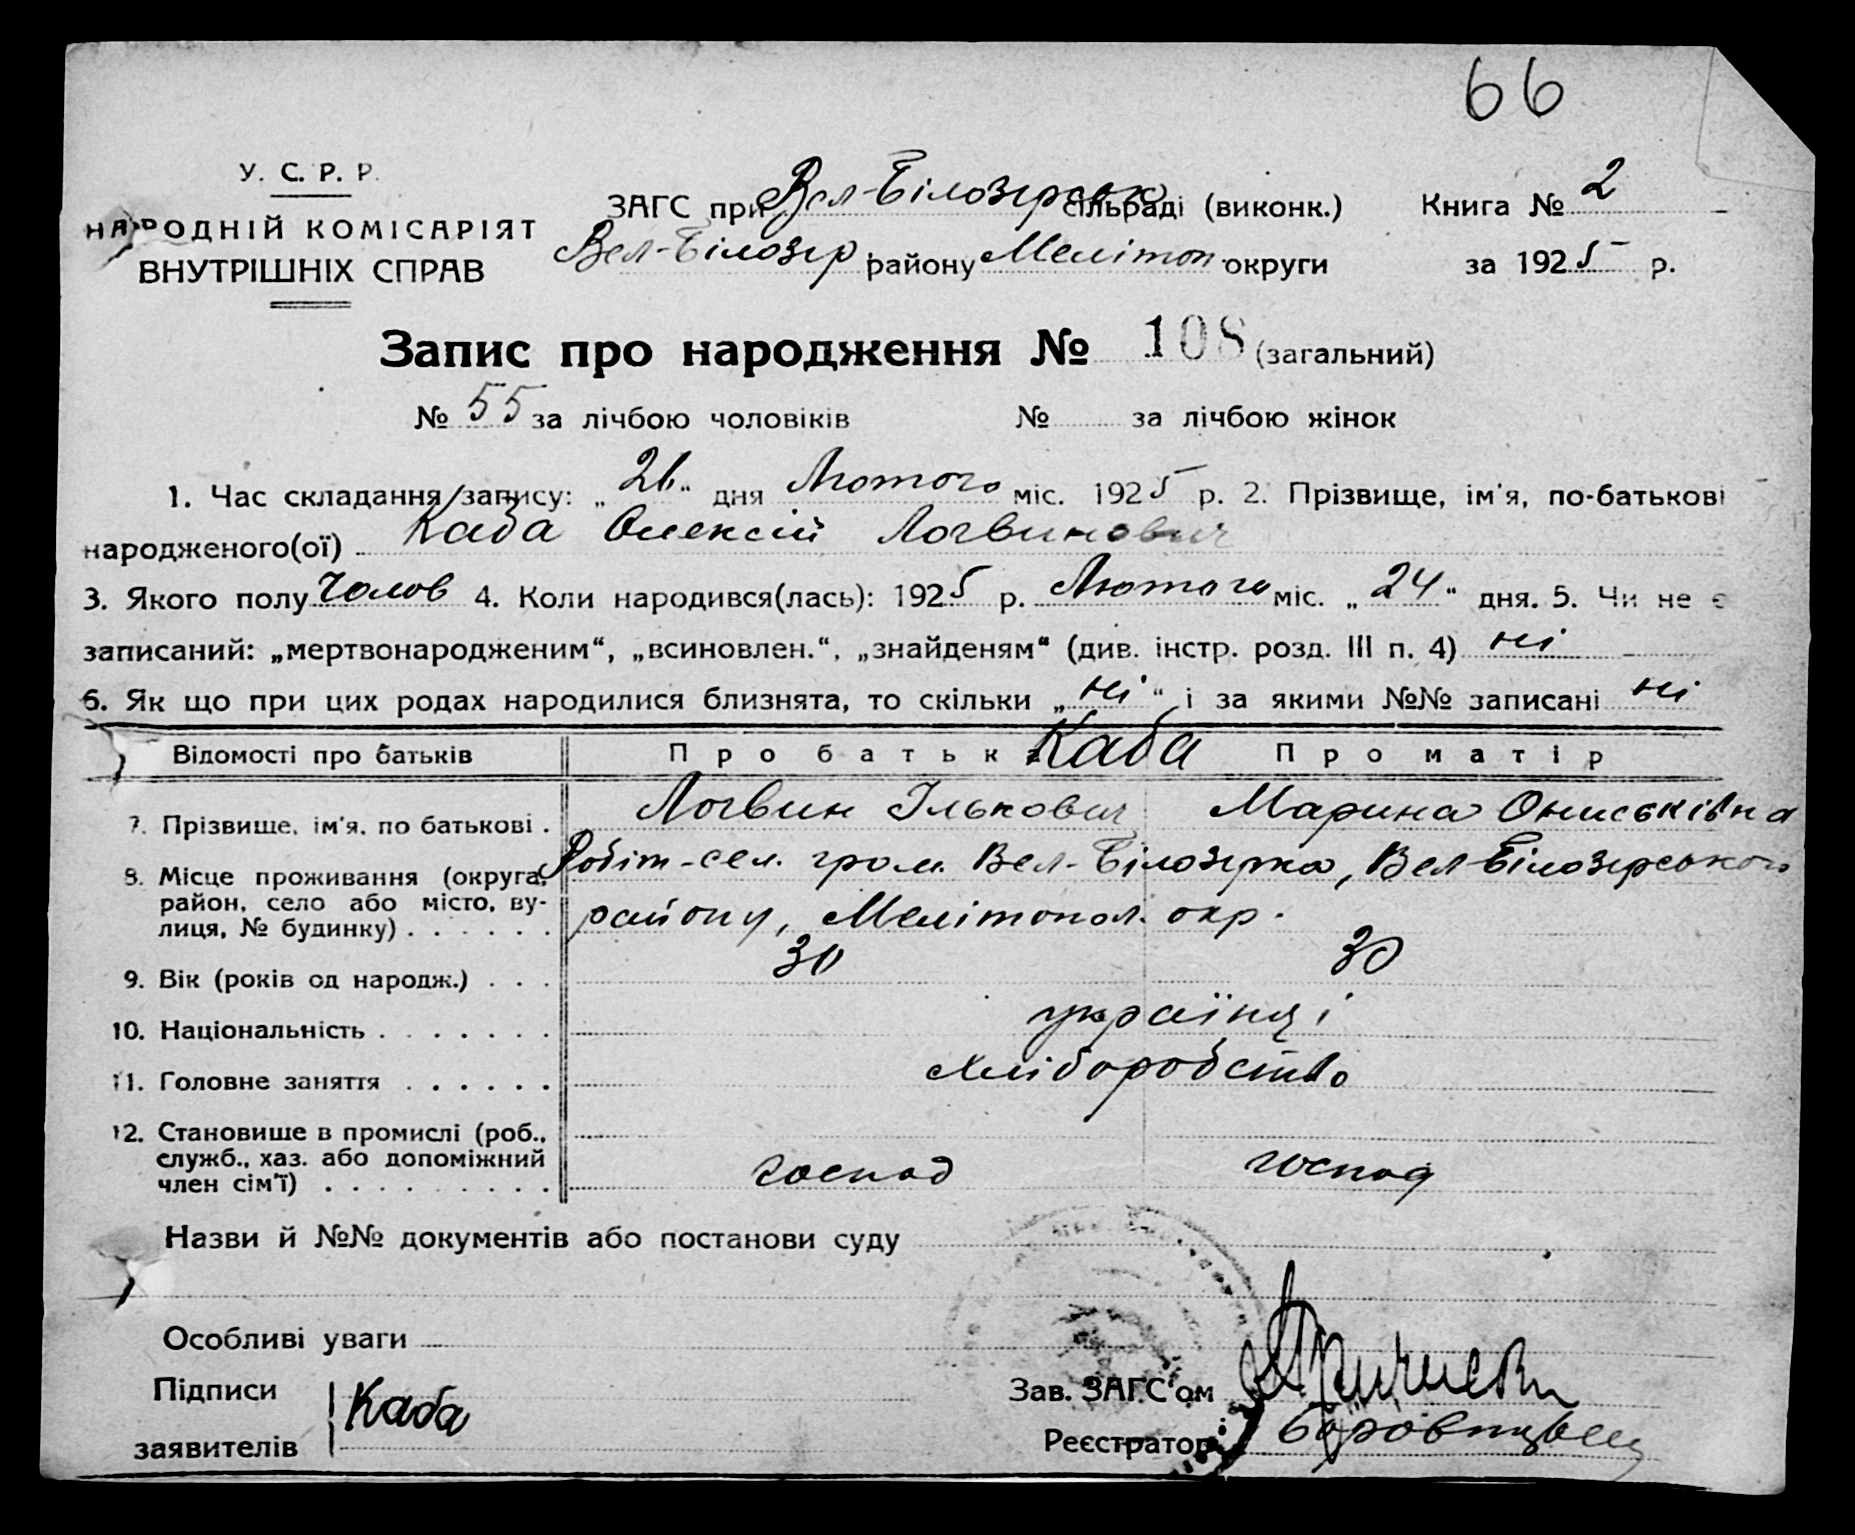 66
У. С. Р. Р.
НАРОДНІЙ КОМІСАРІЯТ
ВНУТРІШНІХ СПРАВ
ЗАГС при Вел-Білозерськ сільраді (виконк.) Книга № 2
Вел-Білозер району Мелітоп. округи за 1925 р.
Запис про народження № 108 (загальний)
№ 55 за лічбою чоловіків № за лічбою жінок
1. Час складання запису: „26“ дня Лютого міс. 1925 р. 2. Прізвище, ім'я, по-батькові
народженого(ої) Каба Олексій Логвинович
3. Якого полу Чолов 4. Коли народився(лась): 1925 р. Лютого міс. „24“ дня. 5. Чи не є
записаний: „мертвонародженим“, „всиновлен.“, „знайденям“ (див. інстр. розд. III п. 4) ні
6. Як що при цих родах народилися близнята, то скільки „ні“ і за якими №№ записані ні
Відомості про батьків Про батьк Каба Про матір
7. Прізвище, ім'я, по батькові . Логвин Ількович Марина Ониськівна
8. Місце проживання (округа, район, село або місто, вулиця, № будинку) . . . . . . Робіт-сел. гром. Вел-Білозерка, Вел-Білозерського
району, Мелітопол. окр.
9. Вік (років од народж.) . . . 30 30
10. Національність . . . . . . . українці
11. Головне заняття . . . . . . хліборобство
12. Становище в промислі (роб.,
служб., хаз. або допоміжний
член сім'ї) . . . . . . . . . господ господ
Назви й №№ документів або постанови суду
Особливі уваги
Підписи Каба Зав. ЗАГС'ом
заявителів Реєстратор